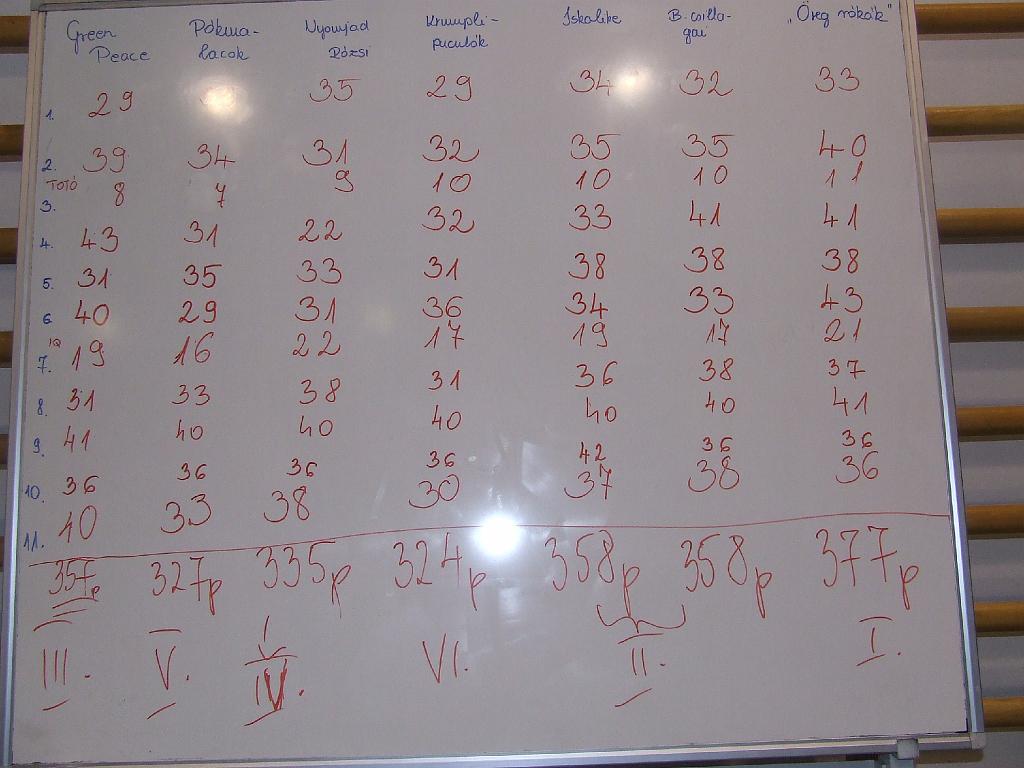 Green Peace Pókma-lacok Nyomjad Rózsi Krumpli-pucolók Iskolike B. csilla-gai „Öreg rókák"
1. 29 35 29 34 32 33
2. 39 34 31 32 35 35 40
TOTÓ 3. 8 7 9 10 10 10 11
4. 43 31 22 32 33 41 41
5. 31 35 33 31 38 38 38
6. 40 29 31 36 34 33 43
IQ 7. 19 16 22 17 19 17 21
8. 31 33 38 31 36 38 37
9. 41 40 40 40 40 40 41
10. 36 36 36 36 42 36 36
11. 40 33 38 30 37 38 36
357p 327p 335p 324p 358p 358p 377p
III. V. IV. VI. II. I.